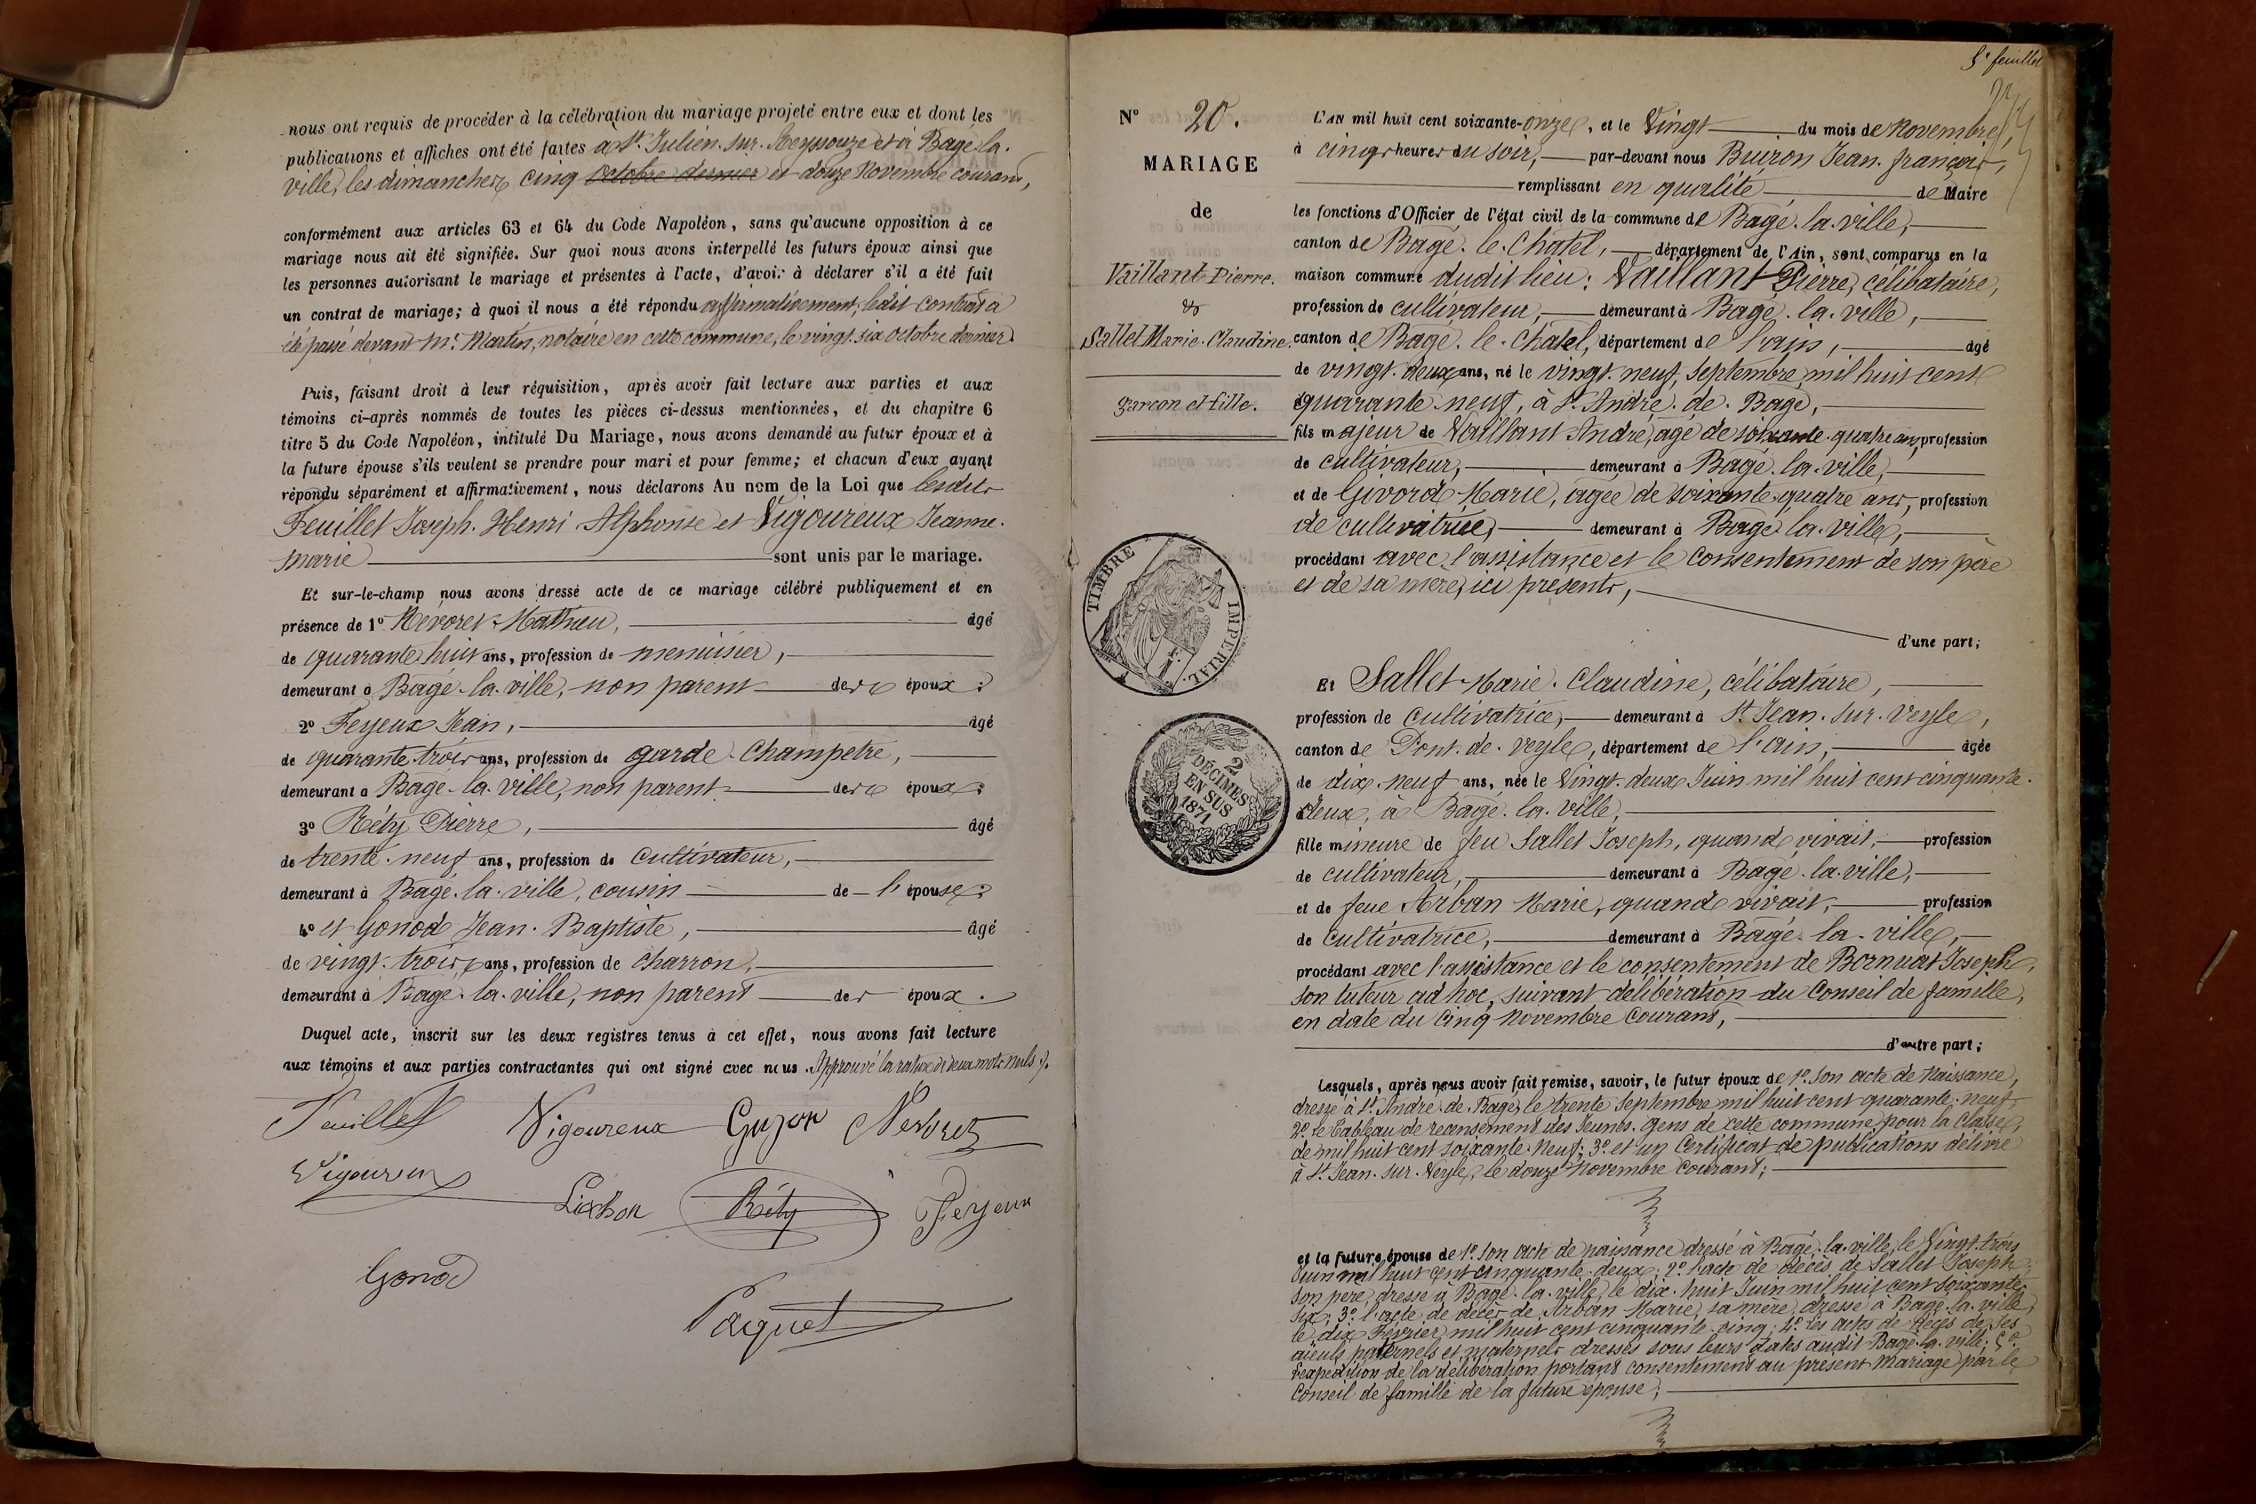 nous ont requis de procéder à la célébration du mariage projeté entre eux et dont les
publications et affiches ont été faites à St Julien-sur-Reyssouze et à Bagé-la-
ville, les dimanches cinq octobre dernier et douze Novembre courant,
conformément aux articles 63 et 64 du Code Napoléon, sans qu'aucune opposition à ce
mariage nous ait été signifiée. Sur quoi nous avons interpellé les futurs époux ainsi que
les personnes autorisant le mariage et présentes à l'acte, d'avoir à déclarer s'il a été fait
un contrat de mariage; à quoi il nous a été répondu affirmativement, ledit contrat a
été passé devant Me Martin, notaire en cette commune, le vingt-six octobre dernier.
Puis, faisant droit à leur réquisition, après avoir fait lecture aux parties et aux
témoins ci-après nommés de toutes les pièces ci-dessus mentionnées, et du chapitre 6
titre 5 du Code Napoléon, intitulé Du Mariage, nous avons demandé au futur époux et à
la future épouse s'ils veulent se prendre pour mari et pour femme; et chacun d'eux ayant
répondu séparément et affirmativement, nous déclarons Au nom de la Loi que lesdits
Feuillet Joseph-Henri-Alphonse et Vigoureux Jeanne-
marie sont unis par le mariage.
Et sur-le-champ nous avons dressé acte de ce mariage célébré publiquement et en
présence de 1° Névoret Mathieu, âgé
de quarante huit ans, profession de menuisier,
demeurant à Bagé-la-ville, non parent des époux;
2° Feyeux Jean, âgé
de quarante-trois ans, profession de garde-Champetre,
demeurant à Bagé-la-ville, non parent des époux;
3° Réty Pierre, âgé
de trente-neuf ans, profession de Cultivateur,
demeurant à Bagé-la-ville, cousin de l'épouse;
4° et Gonod Jean-Baptiste, âgé
de vingt-trois ans, profession de charron,
demeurant à Bagé-la-ville, non parent des époux.
Duquel acte, inscrit sur les deux registres tenus à cet effet, nous avons fait lecture
aux témoins et aux parties contractantes qui ont signé avec nous. Approuvé la rature de deux mots nuls.
Feuillet Vigoureux Guyon Névoret
Vigoureux
Réty Feyeux
Gonod
Paquet
5e feuillet
N° 20.
MARIAGE
de
Vaillant Pierre.
&
Sallet Marie-Claudine.
garçon et fille.
TIMBRE IMPERIAL
2
DÉCIMES
EN SUS
1871
L'AN mil huit cent soixante-onze, et le Vingt du mois de Novembre,
à cinq heures du soir, par-devant nous Buiron Jean-françois,
remplissant en qualité de Maire
les fonctions d'Officier de l'état civil de la commune de Bagé-la-ville,
canton de Bagé-le-Châtel, département de l'Ain, sont comparus en la
maison commune dudit lieu: Vaillant Pierre, célibataire,
profession de cultivateur, demeurant à Bagé-la-ville,
canton de Bagé-le-Chatel, département de l'ain, âgé
de vingt-deux ans, né le vingt-neuf, Septembre, mil huit cent
quarante-neuf, à St André-de-Bagé,
fils majeur de Vaillant André, âgé de soixante-quatre ans, profession
de cultivateur, demeurant à Bagé-la-ville,
et de Givord Marie, âgée de soixante-quatre ans, profession
de cultivatrice, demeurant à Bagé-la-ville,
procédant avec l'assistance et le consentement de son père
et de sa mère, ici présents,
d'une part;
Et Sallet Marie-Claudine, célibataire,
profession de Cultivatrice, demeurant à St Jean-sur-Veyle,
canton de Pont-de-Veyle, département de l'ain, âgée
de dix-neuf ans, née le Vingt-deux Juin mil huit cent cinquante-
deux, à Bagé-la-Ville,
fille mineure de feu Sallet Joseph, quand vivait, profession
de cultivateur, demeurant à Bagé-la-ville,
et de feue Arban Marie, quand vivait, profession
de Cultivatrice, demeurant à Bagé-la-ville,
procédant avec l'assistance et le consentement de Bornuat Joseph,
son tuteur ad hoc, suivant délibération du Conseil de famille,
en date du Cinq Novembre Courant,
d'autre part;
Lesquels, après nous avoir fait remise, savoir, le futur époux de 1° son acte de Naissance,
dressé à St André-de-Bagé, le trente Septembre mil huit cent quarante-neuf,
2° le Tableau de recensement des Jeunes-gens de cette commune pour la Classe
de mil huit cent soixante-Neuf; 3° et un Certificat de publications délivré
à St Jean-sur-Veyle, le douze Novembre Courant;
et la future épouse de 1° son acte de naissance dressé à Bagé-la-ville, le Vingt-trois
Juin mil huit cent cinquante-deux; 2° l'acte de décès de Sallet Joseph,
son père, dressé à Bagé-la-ville, le dix-huit Juin mil huit cent soixante-
six; 3° l'acte de décès de Arban Marie, sa mère, dressé à Bagé-la-ville,
le dix Février mil huit cent cinquante-cinq; 4° les actes de décès de ses
aïeuls paternels et maternels dressés sous leurs dates audit Bagé-la-ville; 5°
l'expédition de la délibération portant consentement au présent Mariage par le
Conseil de famille de la future épouse;